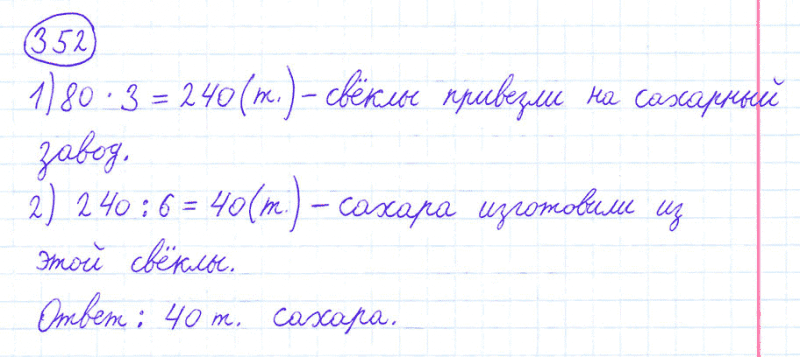 352
1) 80 · 3 = 240 (т.) – свёклы привезли на сахарный
завод.
2) 240 : 6 = 40 (т.) – сахара изготовили из
этой свёклы.
Ответ: 40 т. сахара.